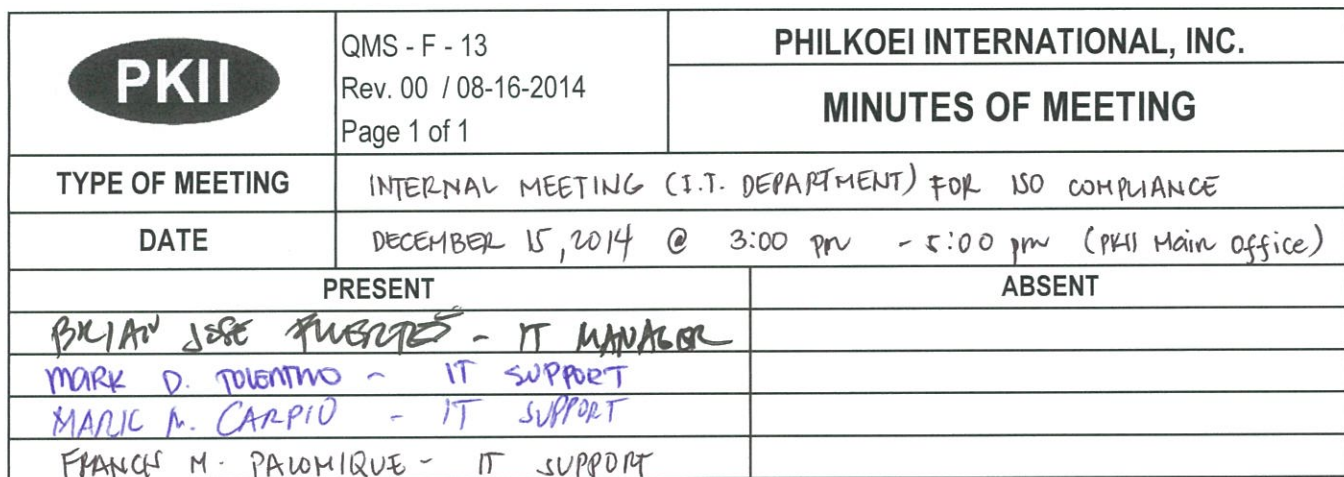 PKII
QMS - F - 13
Rev. 00 / 08-16-2014
Page 1 of 1
PHILKOEI INTERNATIONAL, INC.
MINUTES OF MEETING
TYPE OF MEETING
INTERNAL MEETING (I.T. DEPARTMENT) FOR ISO COMPLIANCE
DATE
DECEMBER 15, 2014 @ 3:00 pm - 5:00 pm (PKII Main Office)
PRESENT
ABSENT
BRIAN JOSE FUERTES - IT MANAGER
MARK D. TOLENTINO - IT SUPPORT
MARK M. CARPIO - IT SUPPORT
FRANCIS M. PALOMIQUE - IT SUPPORT